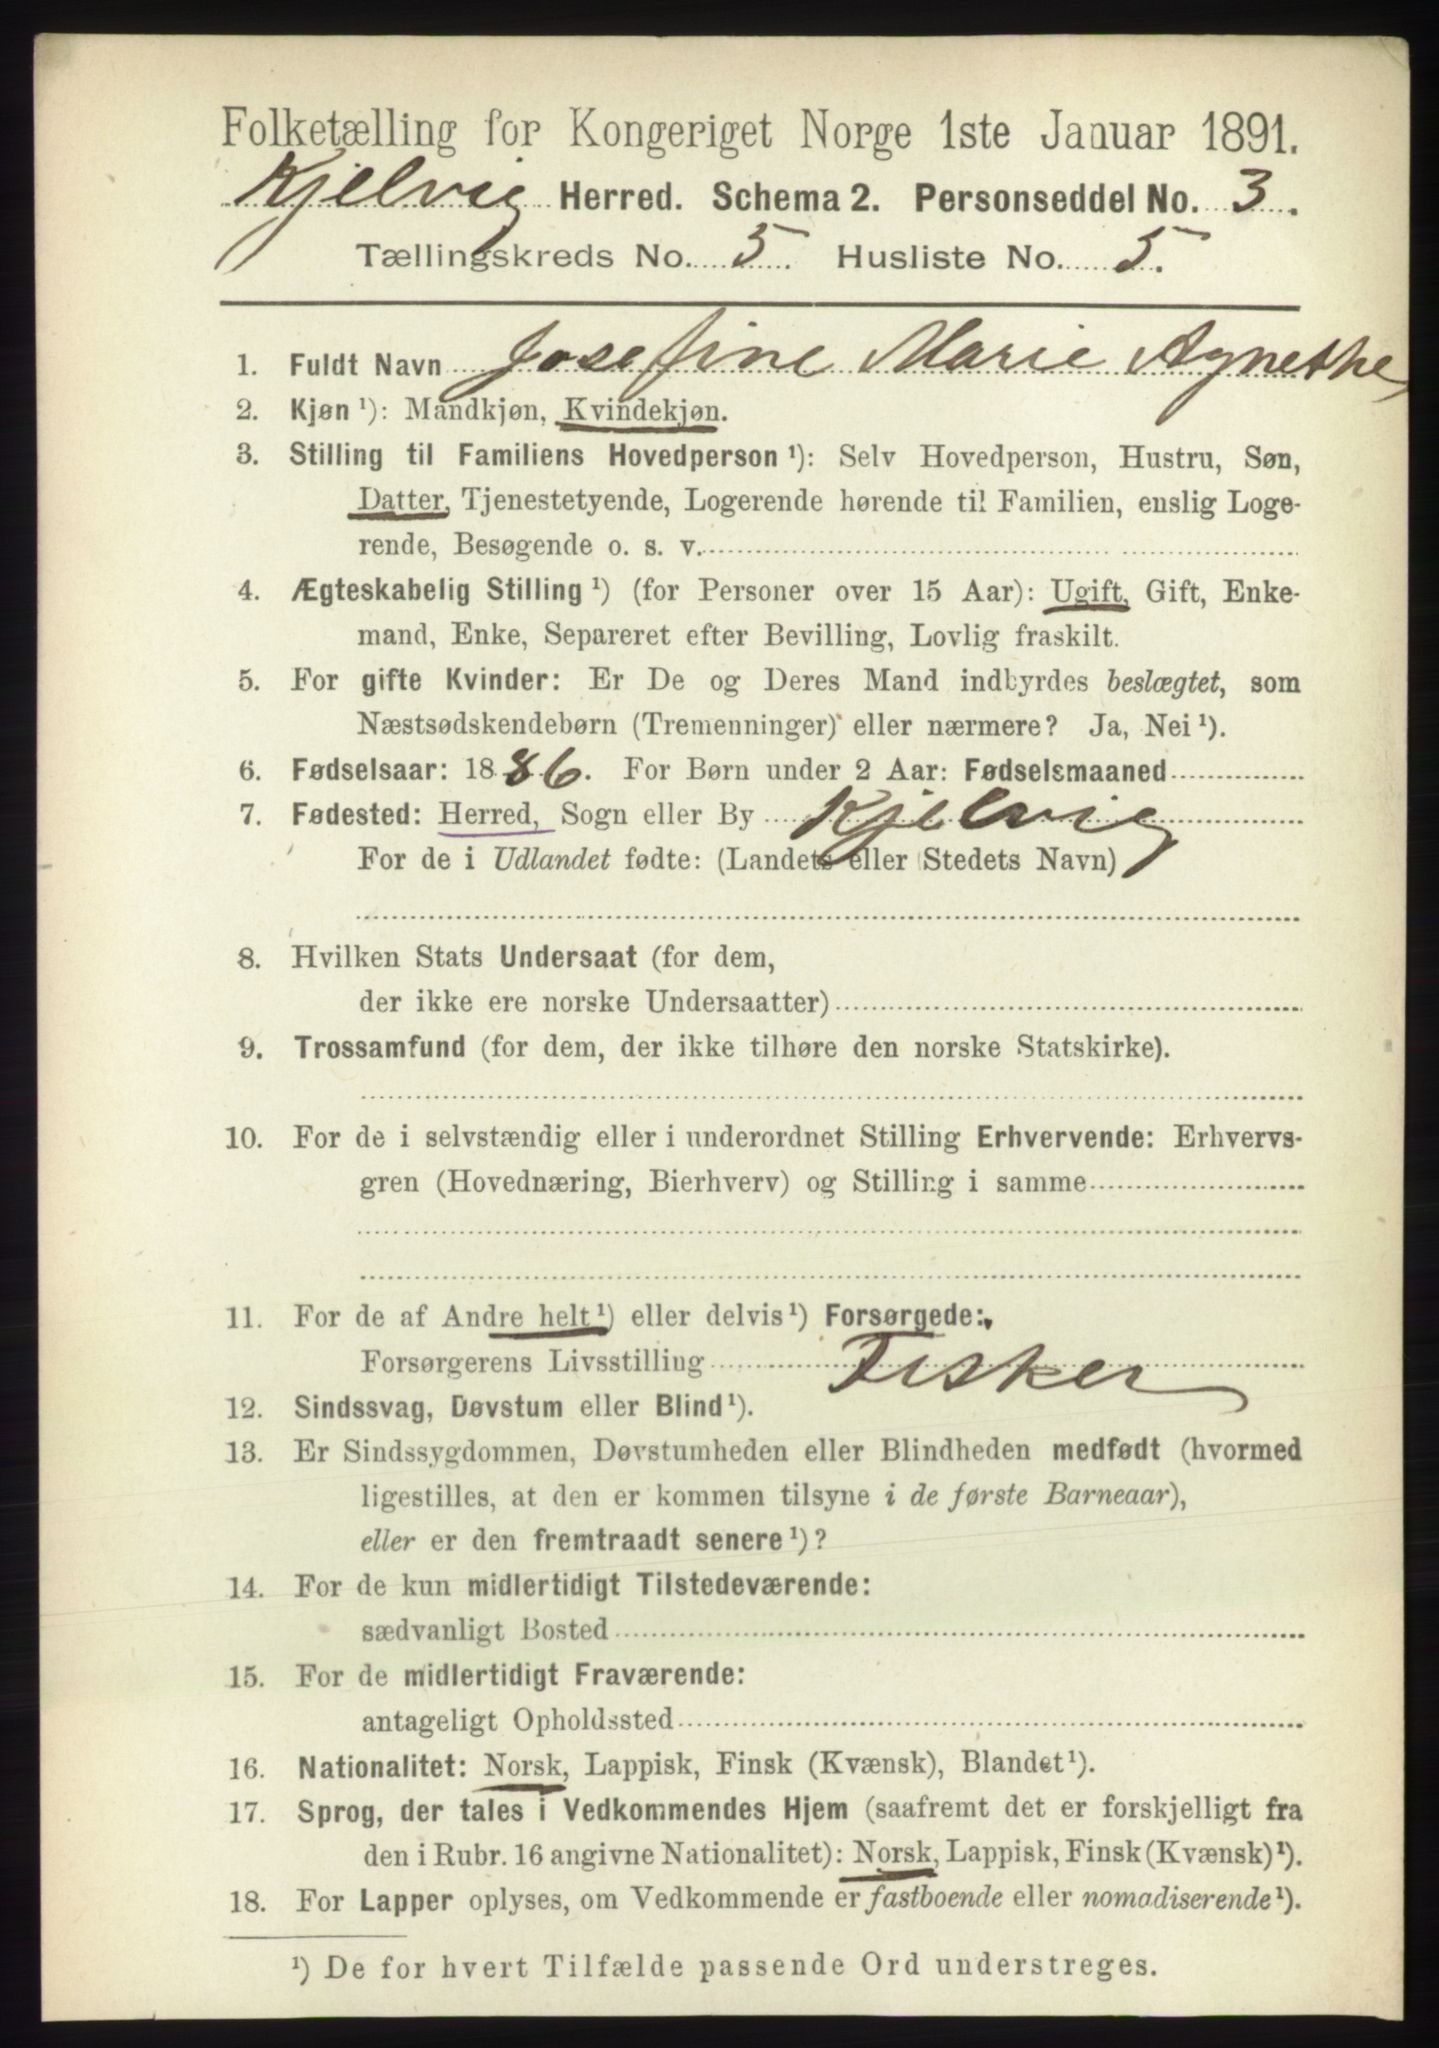 Folketælling for Kongeriget Norge 1ste Januar 1891.
Kjelvig Herred. Schema 2. Personseddel No. 3.
Tællingskreds No. 5. Husliste No. 5.
1. Fuldt Navn Josefine Marie Agnethe
2. Kjøn ¹): Mandkjøn, Kvindekjøn.
3. Stilling til Familiens Hovedperson ¹): Selv Hovedperson, Hustru, Søn,
Datter, Tjenestetyende, Logerende hørende til Familien, enslig Loge-
rende, Besøgende o. s. v.
4. Ægteskabelig Stilling ¹) (for Personer over 15 Aar): Ugift, Gift, Enke-
mand, Enke, Separeret efter Bevilling, Lovlig fraskilt.
5. For gifte Kvinder: Er De og Deres Mand indbyrdes beslægtet, som
Næstsødskendebørn (Tremenninger) eller nærmere? Ja, Nei ¹).
6. Fødselsaar: 1886. For Børn under 2 Aar: Fødselsmaaned
7. Fødested: Herred, Sogn eller By Kjelvig
For de i Udlandet fødte: (Landets eller Stedets Navn)
8. Hvilken Stats Undersaat (for dem,
der ikke ere norske Undersaatter)
9. Trossamfund (for dem, der ikke tilhøre den norske Statskirke).
10. For de i selvstændig eller i underordnet Stilling Erhvervende: Erhvervs-
gren (Hovednæring, Bierhverv) og Stilling i samme
11. For de af Andre helt ¹) eller delvis ¹) Forsørgede:
Forsørgerens Livsstilling Fisker
12. Sindssvag, Døvstum eller Blind ¹).
13. Er Sindssygdommen, Døvstumheden eller Blindheden medfødt (hvormed
ligestilles, at den er kommen tilsyne i de første Barneaar),
eller er den fremtraadt senere ¹)?
14. For de kun midlertidigt Tilstedeværende:
sædvanligt Bosted
15. For de midlertidigt Fraværende:
antageligt Opholdssted
16. Nationalitet: Norsk, Lappisk, Finsk (Kvænsk), Blandet ¹).
17. Sprog, der tales i Vedkommendes Hjem (saafremt det er forskjelligt fra
den i Rubr. 16 angivne Nationalitet): Norsk, Lappisk, Finsk (Kvænsk) ¹).
18. For Lapper oplyses, om Vedkommende er fastboende eller nomadiserende ¹).
¹) De for hvert Tilfælde passende Ord understreges.